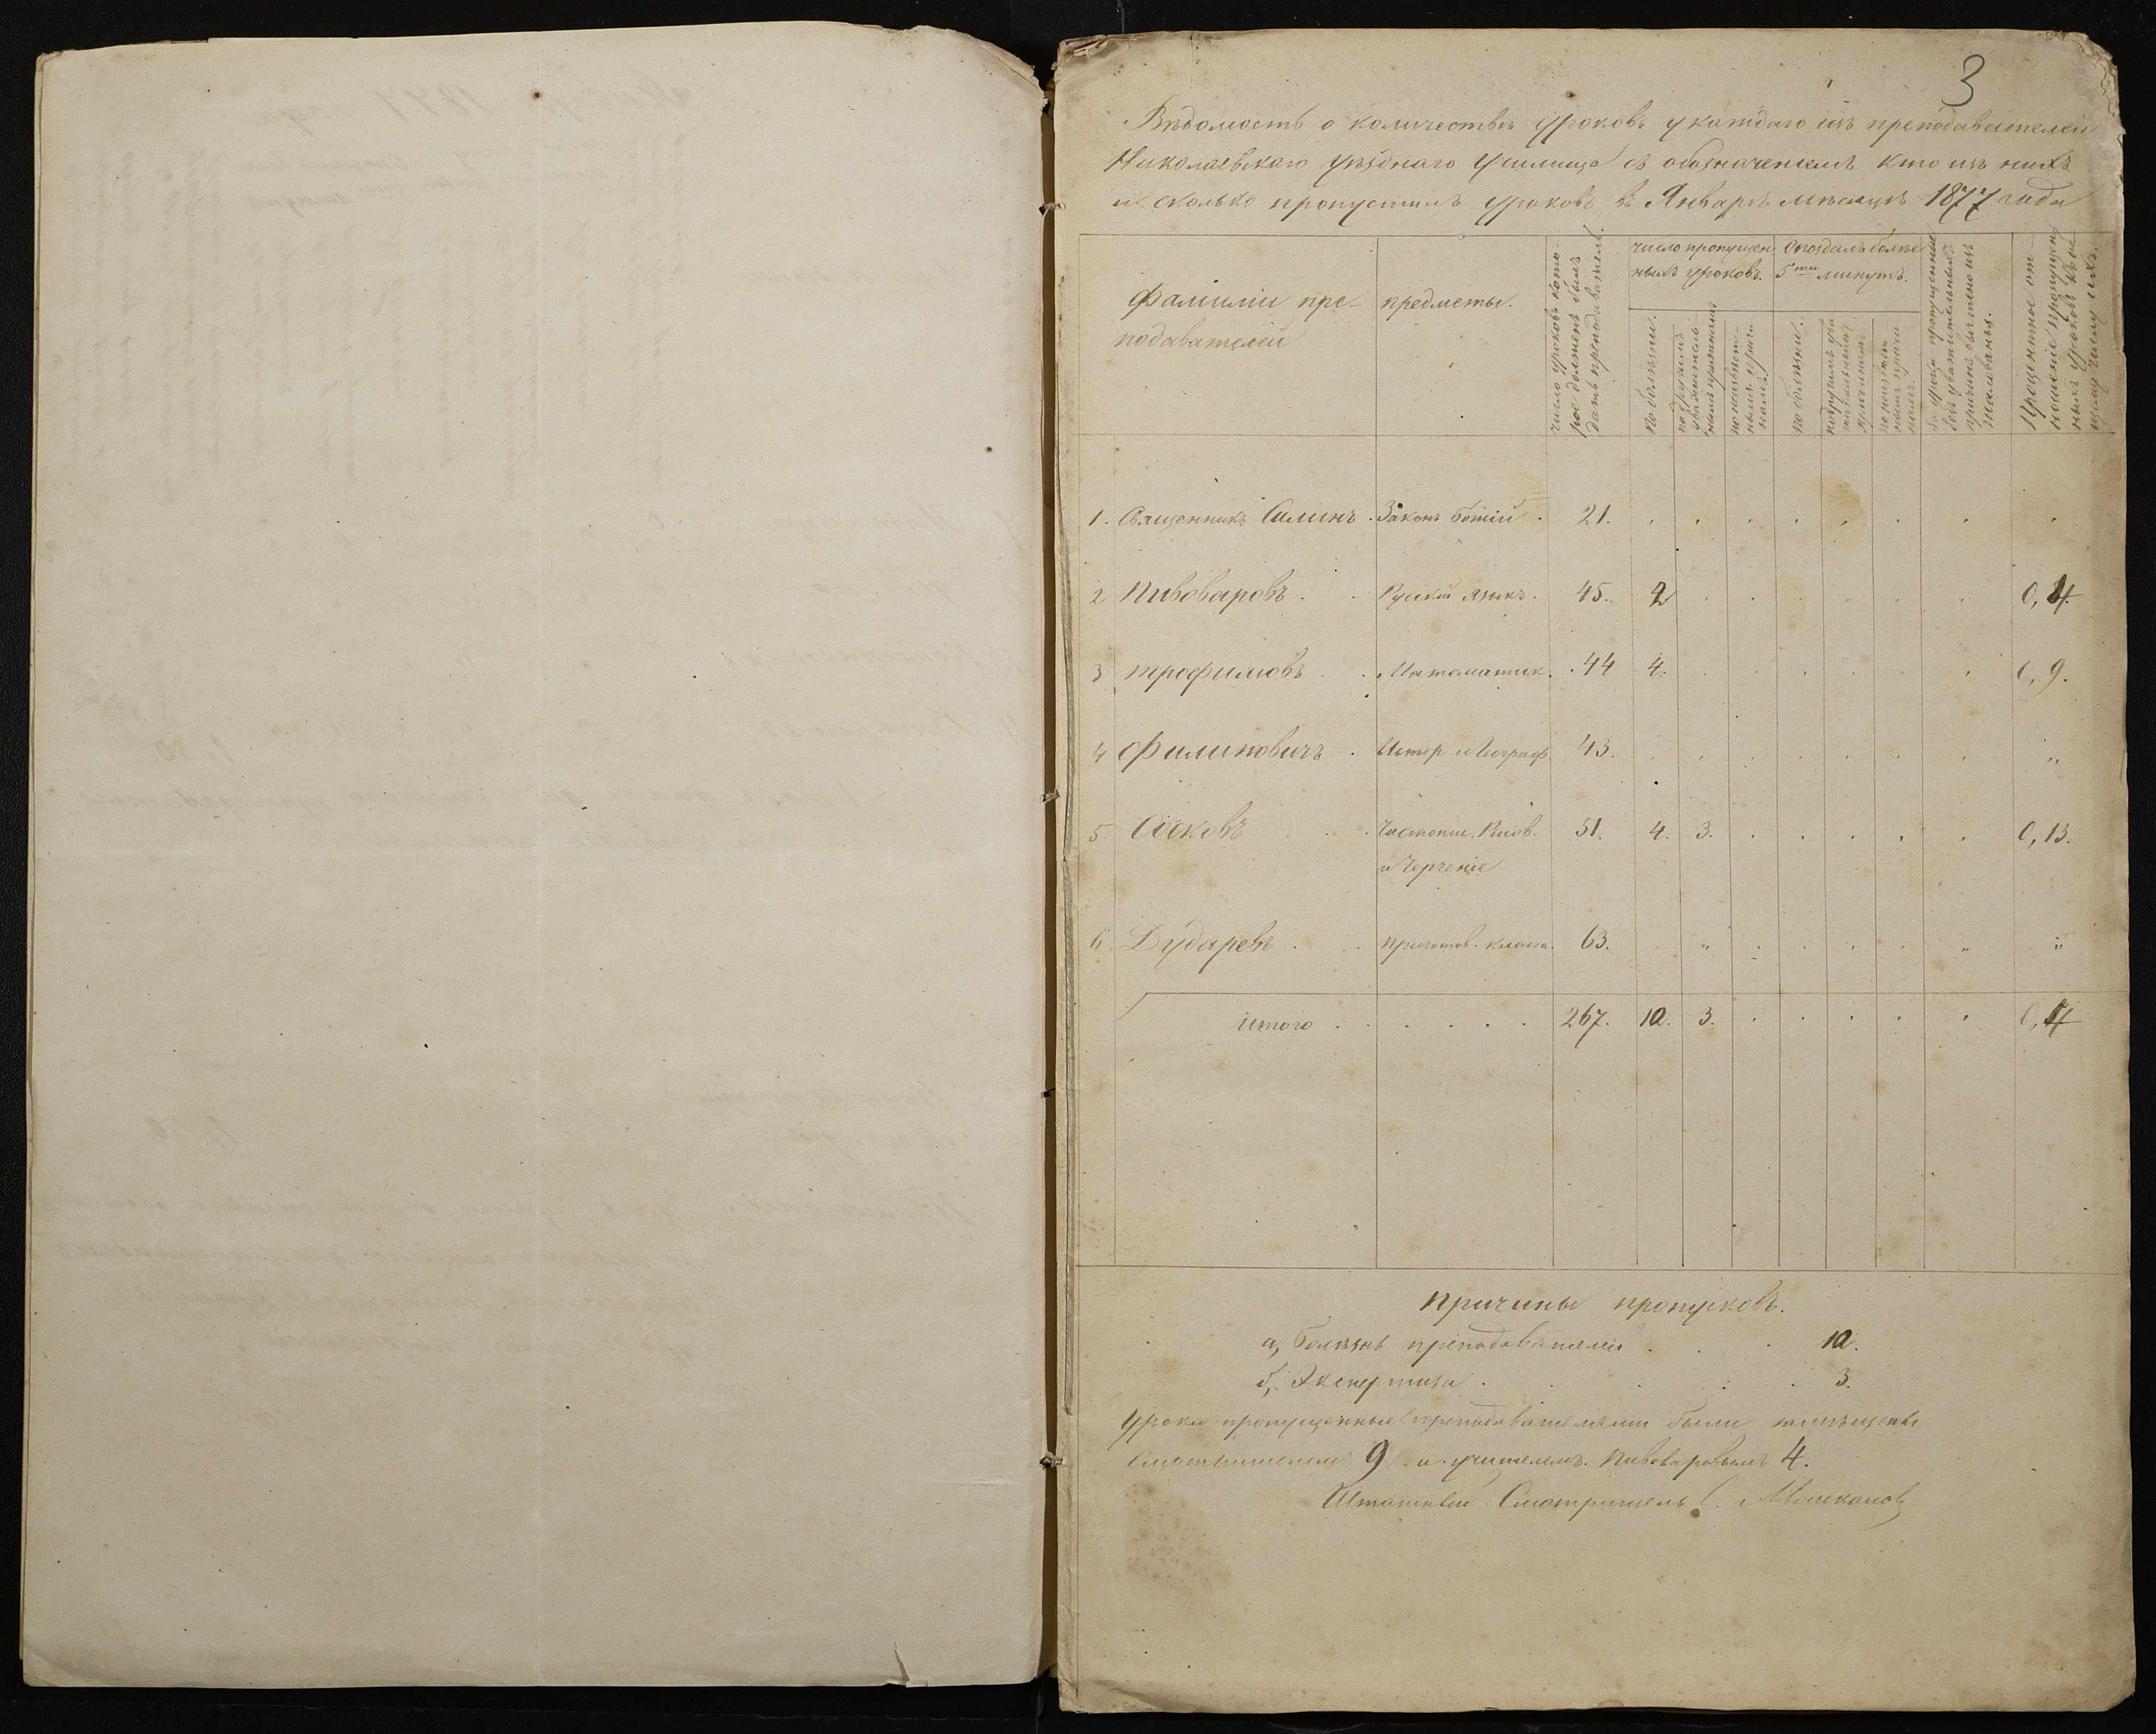 3
Вѣдомость о количествѣ уроковъ у каждаго изъ преподавателей
Николаевскаго уѣзднаго училища съ обозначеніемъ кто изъ нихъ
и сколько пропустилъ уроковъ въ Январѣ мѣсяцѣ 1877 года
Фамиліи пре-
подавателей
предметы.
число уроковъ кото-
рое долженъ былъ
дать преподаватель.
число пропущен-
ныхъ уроковъ.
по болѣзни.
по другимъ
уважитель
нымъ причинамъ
Опоздалъ болѣе
5ти минутъ.
по болѣзни.
по другимъ ува
жительнымъ
причинамъ.
За уроки пропущенные
безъ уважительныхъ
причинъ вычтено изъ
жалованья.
Процентное от-
ношеніе пропущен
ныхъ уроковъ къ об
щему числу ихъ.
1. Священникъ Салинъ . Законъ Божій . 21. . . . . . . . .
2 Пивоваровъ . . Русскій языкъ. 45. 2 . . . . . . 0,4.
3 Трофимовъ . . Математик. 44 4. . . . . . . 0,9.
4 Филиповичъ . Истор. и Географ. 43. . . . . . . . "
5. Осековъ . . . Чистопис. Рисов. 51. 4. 3. . . . . . 0,13.
и Черченіе
6 Дударевъ . . приготов. класса. 63. . " . . . . " "
Итого . . . . . . 267. 10. 3. . . . . . 0,4
Причины пропусковъ.
а, Болѣзнь преподавателей . . . 10.
б, Экспертиза . . . . . 3.
Уроки пропущенные преподавателями были замѣщены
Смотрителемъ 9 и учителемъ Пивоваровымъ 4.
Штатный Смотритель С.